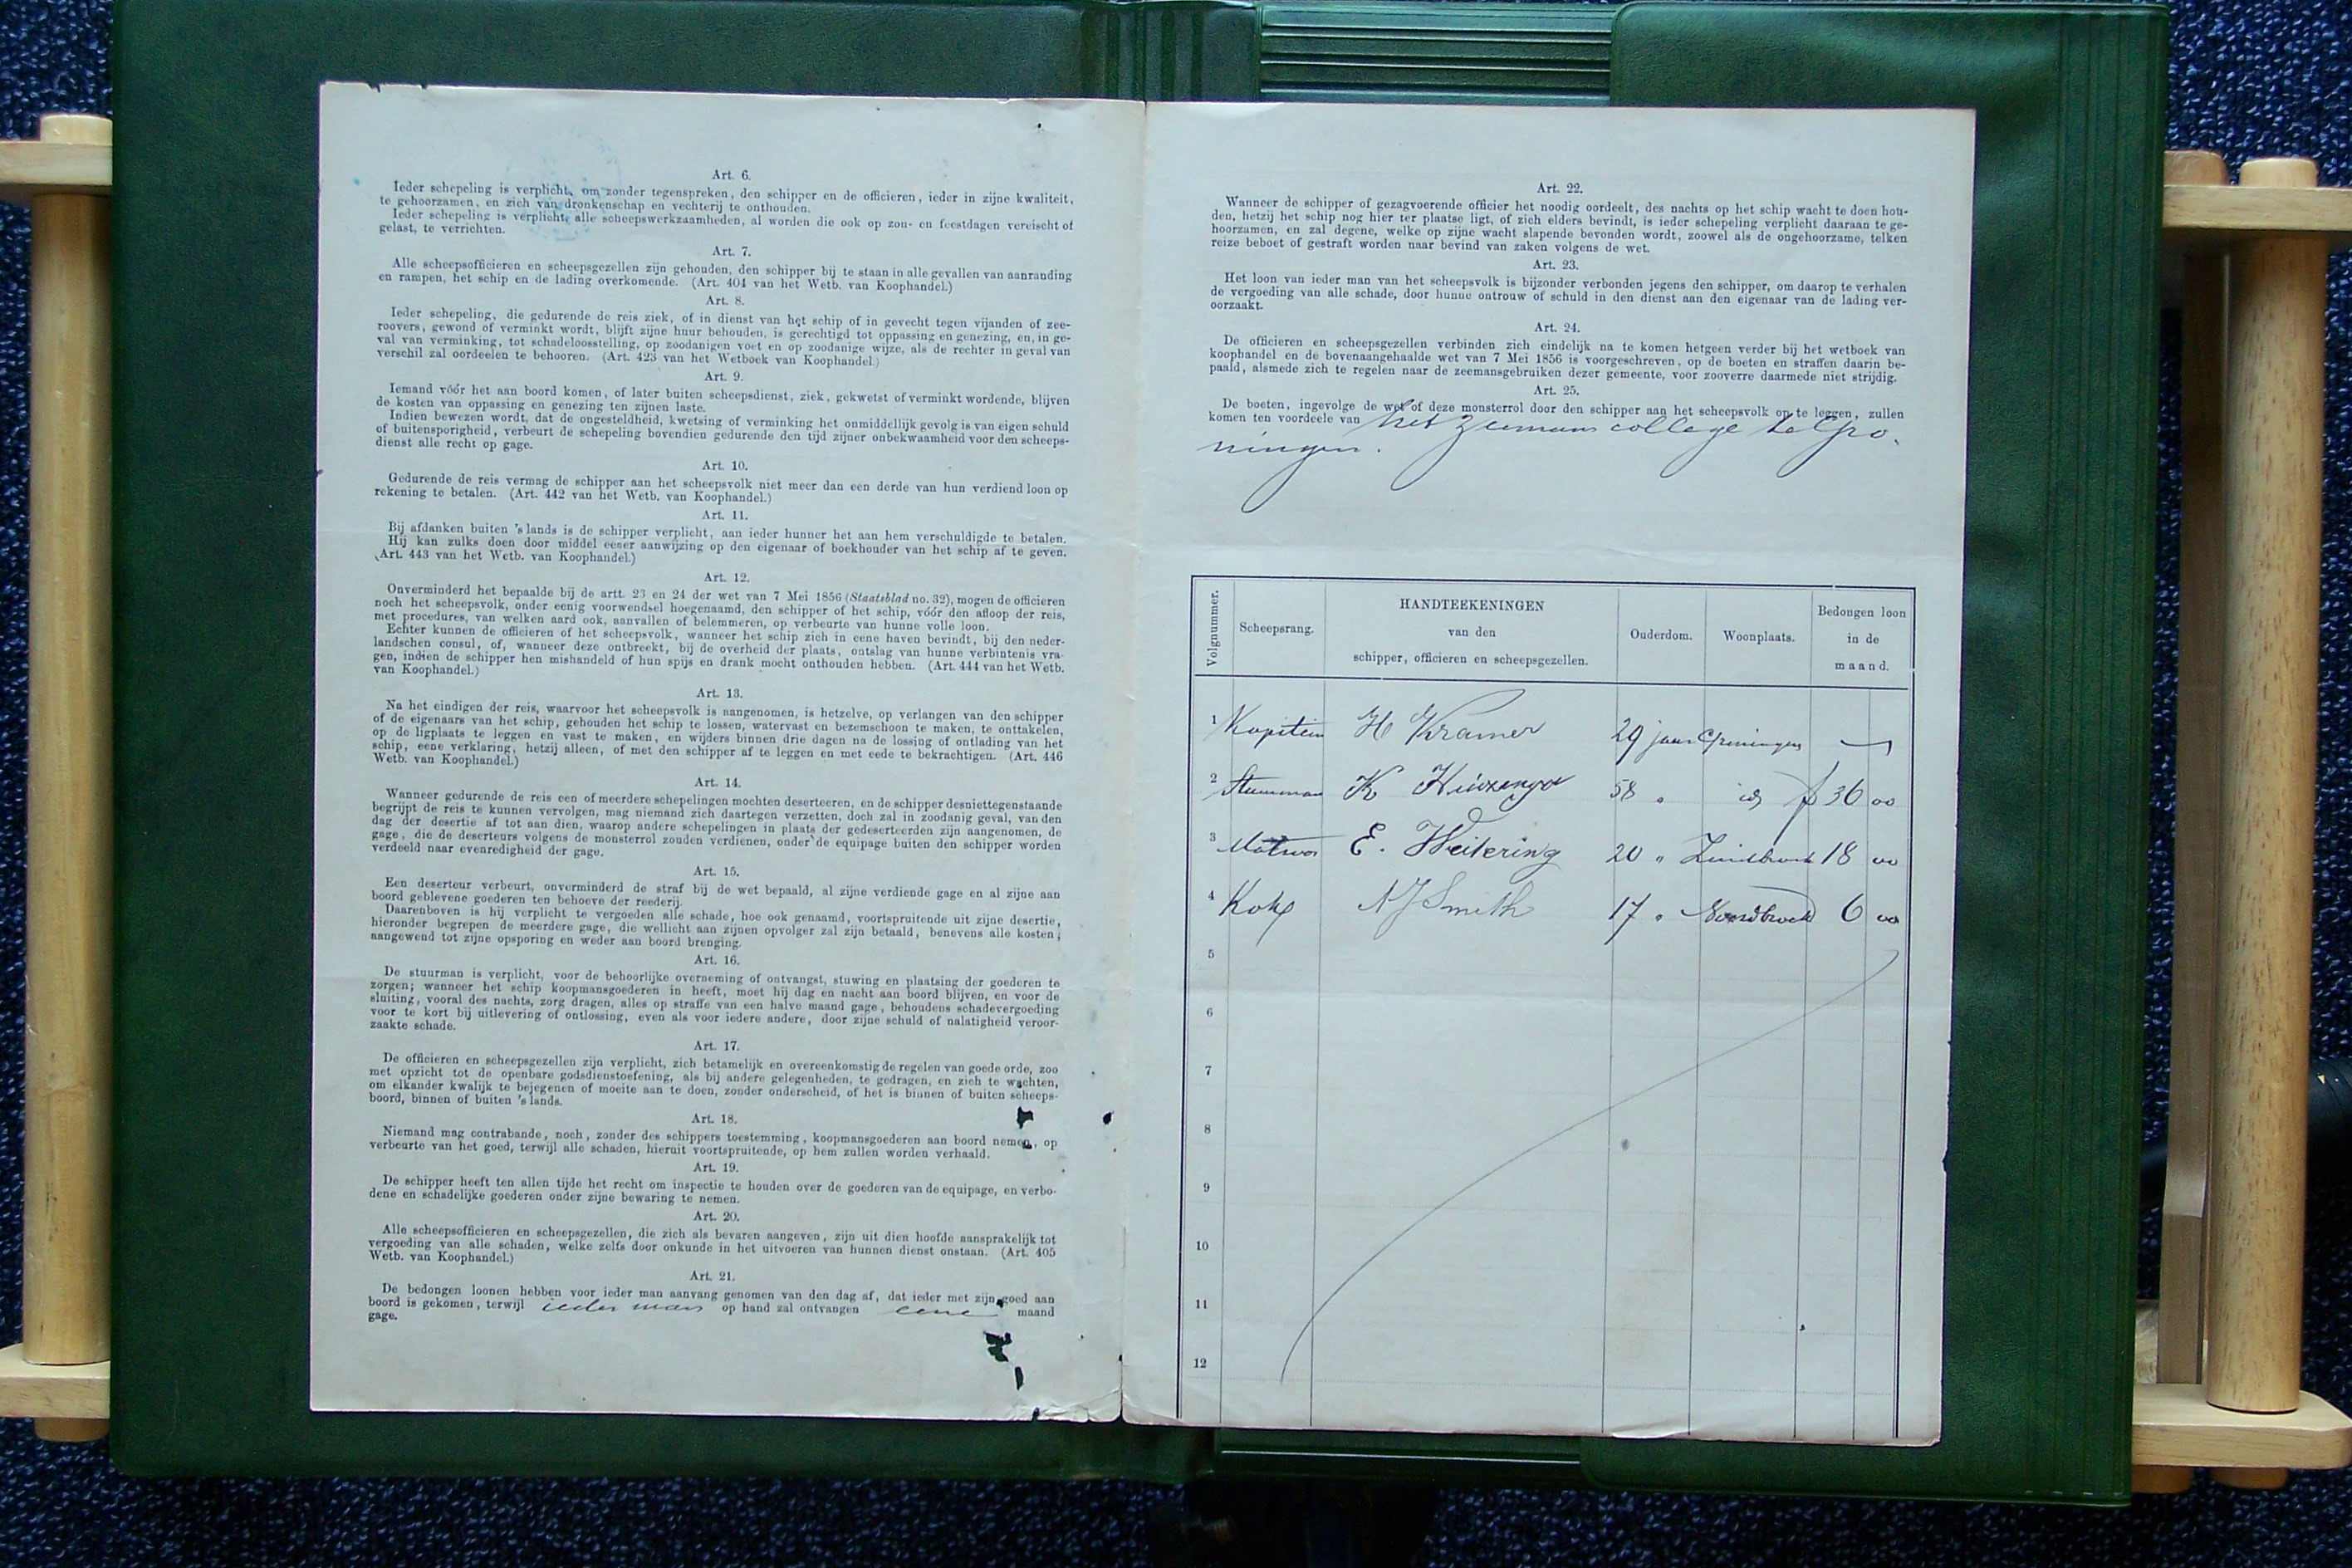 Art. 6.
Ieder schepeling is verplicht, om zonder tegenspreken, den schipper en de officieren, ieder in zijne kwaliteit,
te gehoorzamen, en zich van dronkenschap en vechterij te onthouden.
Ieder schepeling is verplicht, alle scheepswerkzaamheden, al worden die ook op zon- en feestdagen vereischt of
gelast, te verrichten.
Art. 7.
Alle scheepsofficieren en scheepsgezellen zijn gehouden, den schipper bij te staan in alle gevallen van aanranding
en rampen, het schip en de lading overkomende. (Art. 404 van het Wetb. van Koophandel.)
Art. 8.
Ieder schepeling, die gedurende de reis ziek, of in dienst van het schip of in gevecht tegen vijanden of zee-
roovers, gewond of verminkt wordt, blijft zijne huur behouden, is gerechtigd tot oppassing en genezing, en, in ge-
val van verminking, tot schadeloosstelling, op zoodanigen voet en op zoodanige wijze, als de rechter in geval van
verschil zal oordeelen te behooren. (Art. 423 van het Wetboek van Koophandel.)
Art. 9.
Iemand vóór het aan boord komen, of later buiten scheepsdienst, ziek, gekwetst of verminkt wordende, blijven
de kosten van oppassing en genezing ten zijnen laste.
Indien bewezen wordt, dat de ongesteldheid, kwetsing of verminking het onmiddellijk gevolg is van eigen schuld
of buitensporigheid, verbeurt de schepeling bovendien gedurende den tijd zijner onbekwaamheid voor den scheeps-
dienst alle recht op gage.
Art. 10.
Gedurende de reis vermag de schipper aan het scheepsvolk niet meer dan een derde van hun verdiend loon op
rekening te betalen. (Art. 442 van het Wetb. van Koophandel.)
Art. 11.
Bij afdanken buiten 's lands is de schipper verplicht, aan ieder hunner het aan hem verschuldigde te betalen.
Hij kan zulks doen door middel eener aanwijzing op den eigenaar of boekhouder van het schip af te geven.
(Art. 443 van het Wetb. van Koophandel.)
Art. 12.
Onverminderd het bepaalde bij de artt. 23 en 24 der wet van 7 Mei 1856 (Staatsblad no. 32), mogen de officieren
noch het scheepsvolk, onder eenig voorwendsel hoegenaamd, den schipper of het schip, vóór den afloop der reis,
met procedures, van welken aard ook, aanvallen of belemmeren, op verbeurte van hunne volle loon.
Echter kunnen de officieren of het scheepsvolk, wanneer het schip zich in eene haven bevindt, bij den neder-
landschen consul, of, wanneer deze ontbreekt, bij de overheid der plaats, ontslag van hunne verbintenis vra-
gen, indien de schipper hen mishandeld of hun spijs en drank mocht onthouden hebben. (Art. 444 van het Wetb.
van Koophandel.)
Art. 13.
Na het eindigen der reis, waarvoor het scheepsvolk is aangenomen, is hetzelve, op verlangen van den schipper
of de eigenaars van het schip, gehouden het schip te lossen, watervast en bezemschoon te maken, te onttakelen,
op de ligplaats te leggen en vast te maken, en wijders binnen drie dagen na de lossing of ontlading van het
schip, eene verklaring, hetzij alleen, of met den schipper af te leggen en met eede te bekrachtigen. (Art. 446
Wetb. van Koophandel.)
Art. 14.
Wanneer gedurende de reis een of meerdere schepelingen mochten deserteeren, en de schipper desniettegenstaande
begrijpt de reis te kunnen vervolgen, mag niemand zich daartegen verzetten, doch zal in zoodanig geval, van den
dag der desertie af tot aan dien, waarop andere schepelingen in plaats der gedeserteerden zijn aangenomen, de
gage, die de deserteurs volgens de monsterrol zouden verdienen, onder de equipage buiten den schipper worden
verdeeld naar evenredigheid der gage.
Art. 15.
Een deserteur verbeurt, onverminderd de straf bij de wet bepaald, al zijne verdiende gage en al zijne aan
boord geblevene goederen ten behoeve der reederij.
Daarenboven is hij verplicht te vergoeden alle schade, hoe ook genaamd, voortspruitende uit zijne desertie,
hieronder begrepen de meerdere gage, die wellicht aan zijnen opvolger zal zijn betaald, benevens alle kosten,
aangewend tot zijne opsporing en weder aan boord brenging.
Art. 16.
De stuurman is verplicht, voor de behoorlijke overneming of ontvangst, stuwing en plaatsing der goederen te
zorgen; wanneer het schip koopmansgoederen in heeft, moet hij dag en nacht aan boord blijven, en voor de
sluiting, vooral des nachts, zorg dragen, alles op straffe van een halve maand gage, behoudens schadevergoeding
voor te kort bij uitlevering of ontlossing, even als voor iedere andere, door zijne schuld of nalatigheid veroor-
zaakte schade.
Art. 17.
De officieren en scheepsgezellen zijn verplicht, zich betamelijk en overeenkomstig de regelen van goede orde, zoo
met opzicht tot de openbare godsdienstoefening, als bij andere gelegenheden, te gedragen, en zich te wachten,
om elkander kwalijk te bejegenen of moeite aan te doen, zonder onderscheid, of het is binnen of buiten scheeps-
boord, binnen of buiten 's lands.
Art. 18.
Niemand mag contrabande, noch, zonder des schippers toestemming, koopmansgoederen aan boord nemen, op
verbeurte van het goed, terwijl alle schaden, hieruit voortspruitende, op hem zullen worden verhaald.
Art. 19.
De schipper heeft ten allen tijde het recht om inspectie te houden over de goederen van de equipage, en verbo-
dene en schadelijke goederen onder zijne bewaring te nemen.
Art. 20.
Alle scheepsofficieren en scheepsgezellen, die zich als bevaren aangeven, zijn uit dien hoofde aansprakelijk tot
vergoeding van alle schaden, welke zelfs door onkunde in het uitvoeren van hunnen dienst onstaan. (Art. 405
Wetb. van Koophandel.)
Art. 21.
De bedongen loonen hebben voor ieder man aanvang genomen van den dag af, dat ieder met zijn goed aan
boord is gekomen, terwijl ieder man op hand zal ontvangen eene maand
gage.
Art. 22.
Wanneer de schipper of gezagvoerende officier het noodig oordeelt, des nachts op het schip wacht te doen hou-
den, hetzij het schip nog hier ter plaatse ligt, of zich elders bevindt, is ieder schepeling verplicht daaraan te ge-
hoorzamen, en zal degene, welke op zijne wacht slapende bevonden wordt, zoowel als de ongehoorzame, telken
reize beboet of gestraft worden naar bevind van zaken volgens de wet.
Art. 23.
Het loon van ieder man van het scheepsvolk is bijzonder verbonden jegens den schipper, om daarop te verhalen
de vergoeding van alle schade, door hunne ontrouw of schuld in den dienst aan den eigenaar van de lading ver-
oorzaakt.
Art. 24.
De officieren en scheepsgezellen verbinden zich eindelijk na te komen hetgeen verder bij het wetboek van
koophandel en de bovenaangehaalde wet van 7 Mei 1856 is voorgeschreven, op de boeten en straffen daarin be-
paald, alsmede zich te regelen naar de zeemansgebruiken dezer gemeente, voor zooverre daarmede niet strijdig.
Art. 25.
De boeten, ingevolge de wet of deze monsterrol door den schipper aan het scheepsvolk op te leggen, zullen
komen ten voordeele van het Zeemans college te Gro-
ningen.
Volgnummer. Scheepsrang. HANDTEEKENINGEN van den schipper, officieren en scheepsgezellen. Ouderdom. Woonplaats. Bedongen loon in de maand.
1 Kapitein H Kramer 29 jaar Groningen —
2 Stuurman K Huizenga 58 " id f 36 00
3 Matroos E. Weitering 20 " Zuidbroek 18 00
4 Kok N J Smith 17 " Noordbroek 6 00
5
6
7
8
9
10
11
12